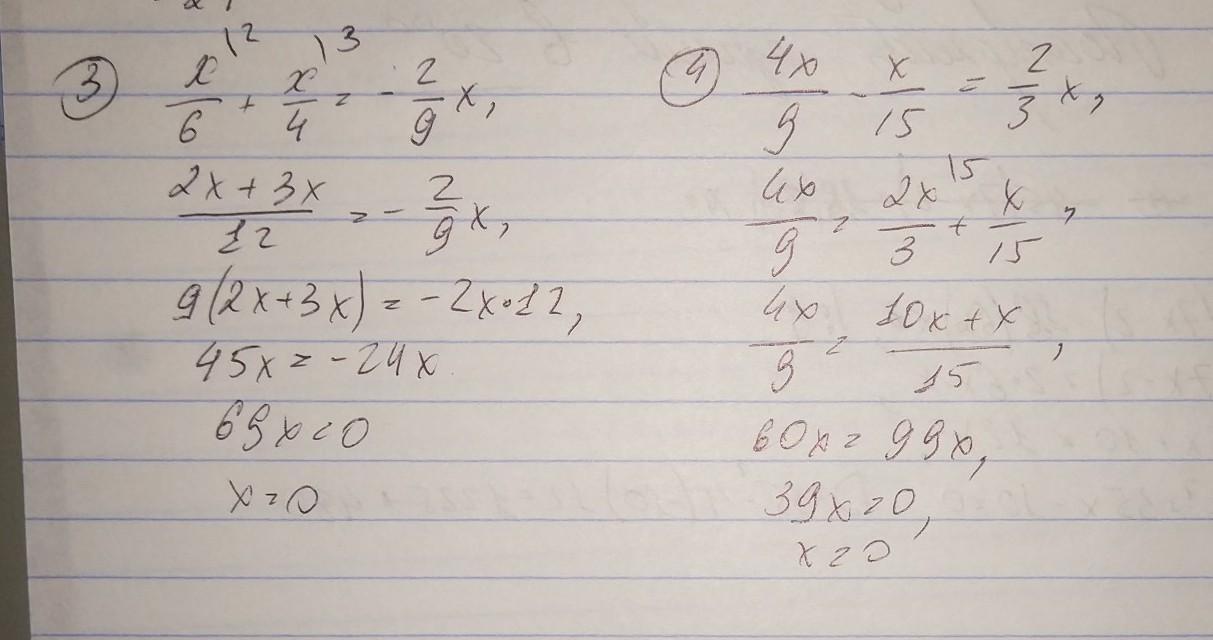 ③ x/6 \2 + x/4 \3 = - 2/9 x,
(2x + 3x)/12 = - 2/9 x,
9(2x+3x) = -2x·12,
45x = -24x.
69x = 0
x = 0
④ 4x/9 - x/15 = 2/3 x,
4x/9 = 2x/3 \5 + x/15,
4x/9 = (10x + x)/15,
60x = 99x,
39x = 0,
x = 0